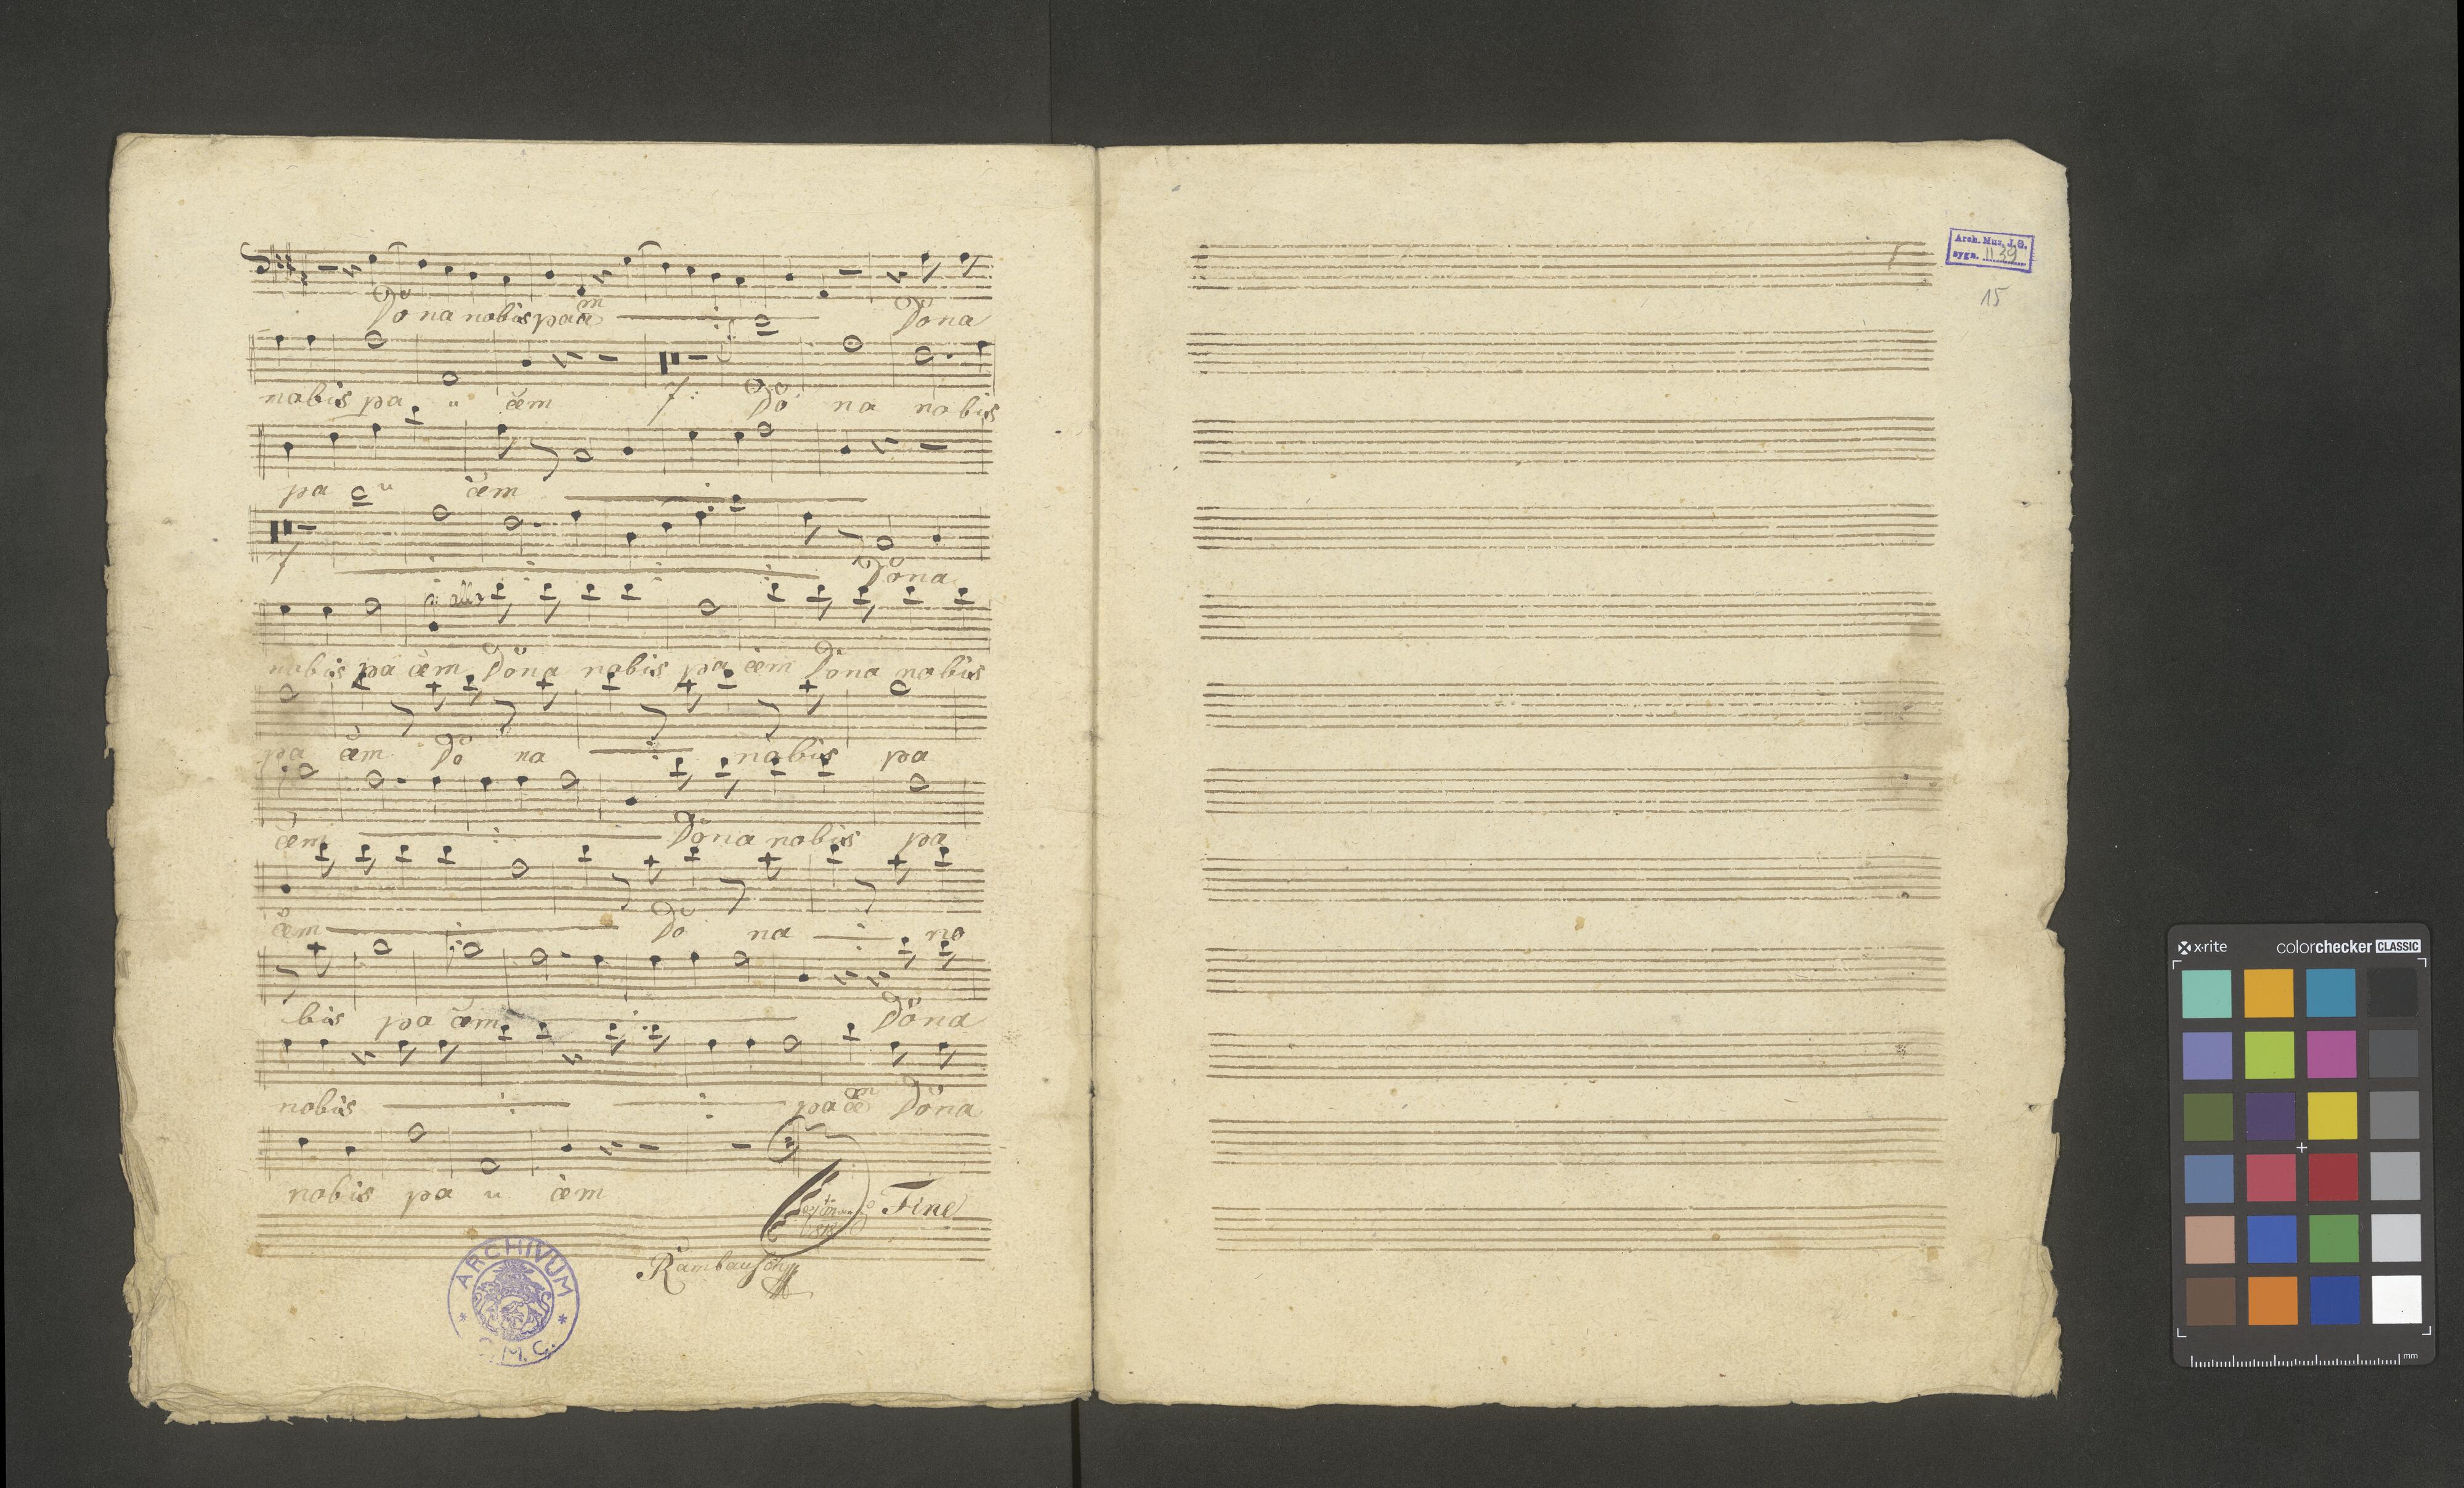 Dona nobis pacem Dona
nobis pa cem Do na nobis
pa cem
Dona
all°
nobis pacem Dona nobis pacem Dona nobis
pa cem Do na nobis pa
cem Dona nobis pa
cem Do na no
bis pa cem Dona
nobis pacem Dona
nobis pa cem
Fine
ARCHIVUM
M. C.
Arch. Muz. J. G.
sygn. II 39
15
x-rite colorchecker CLASSIC
mm